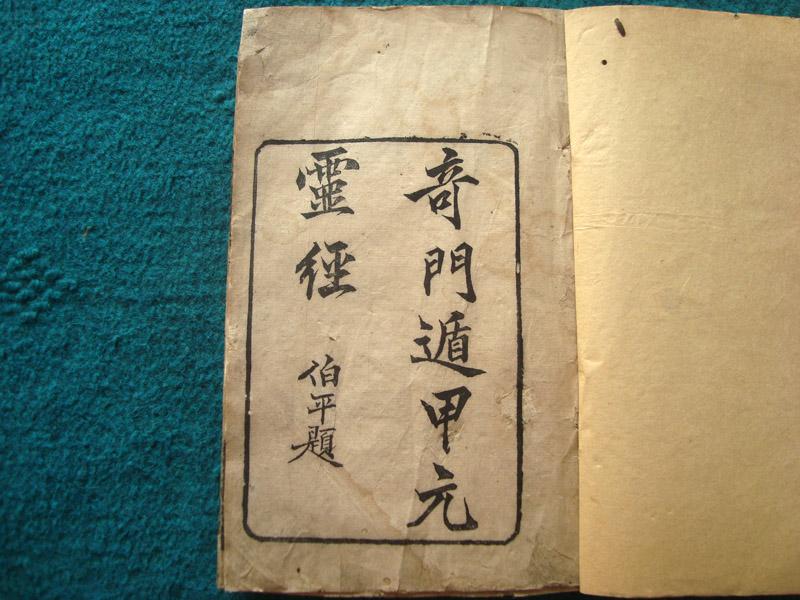 奇門遁甲元
靈經
伯平題